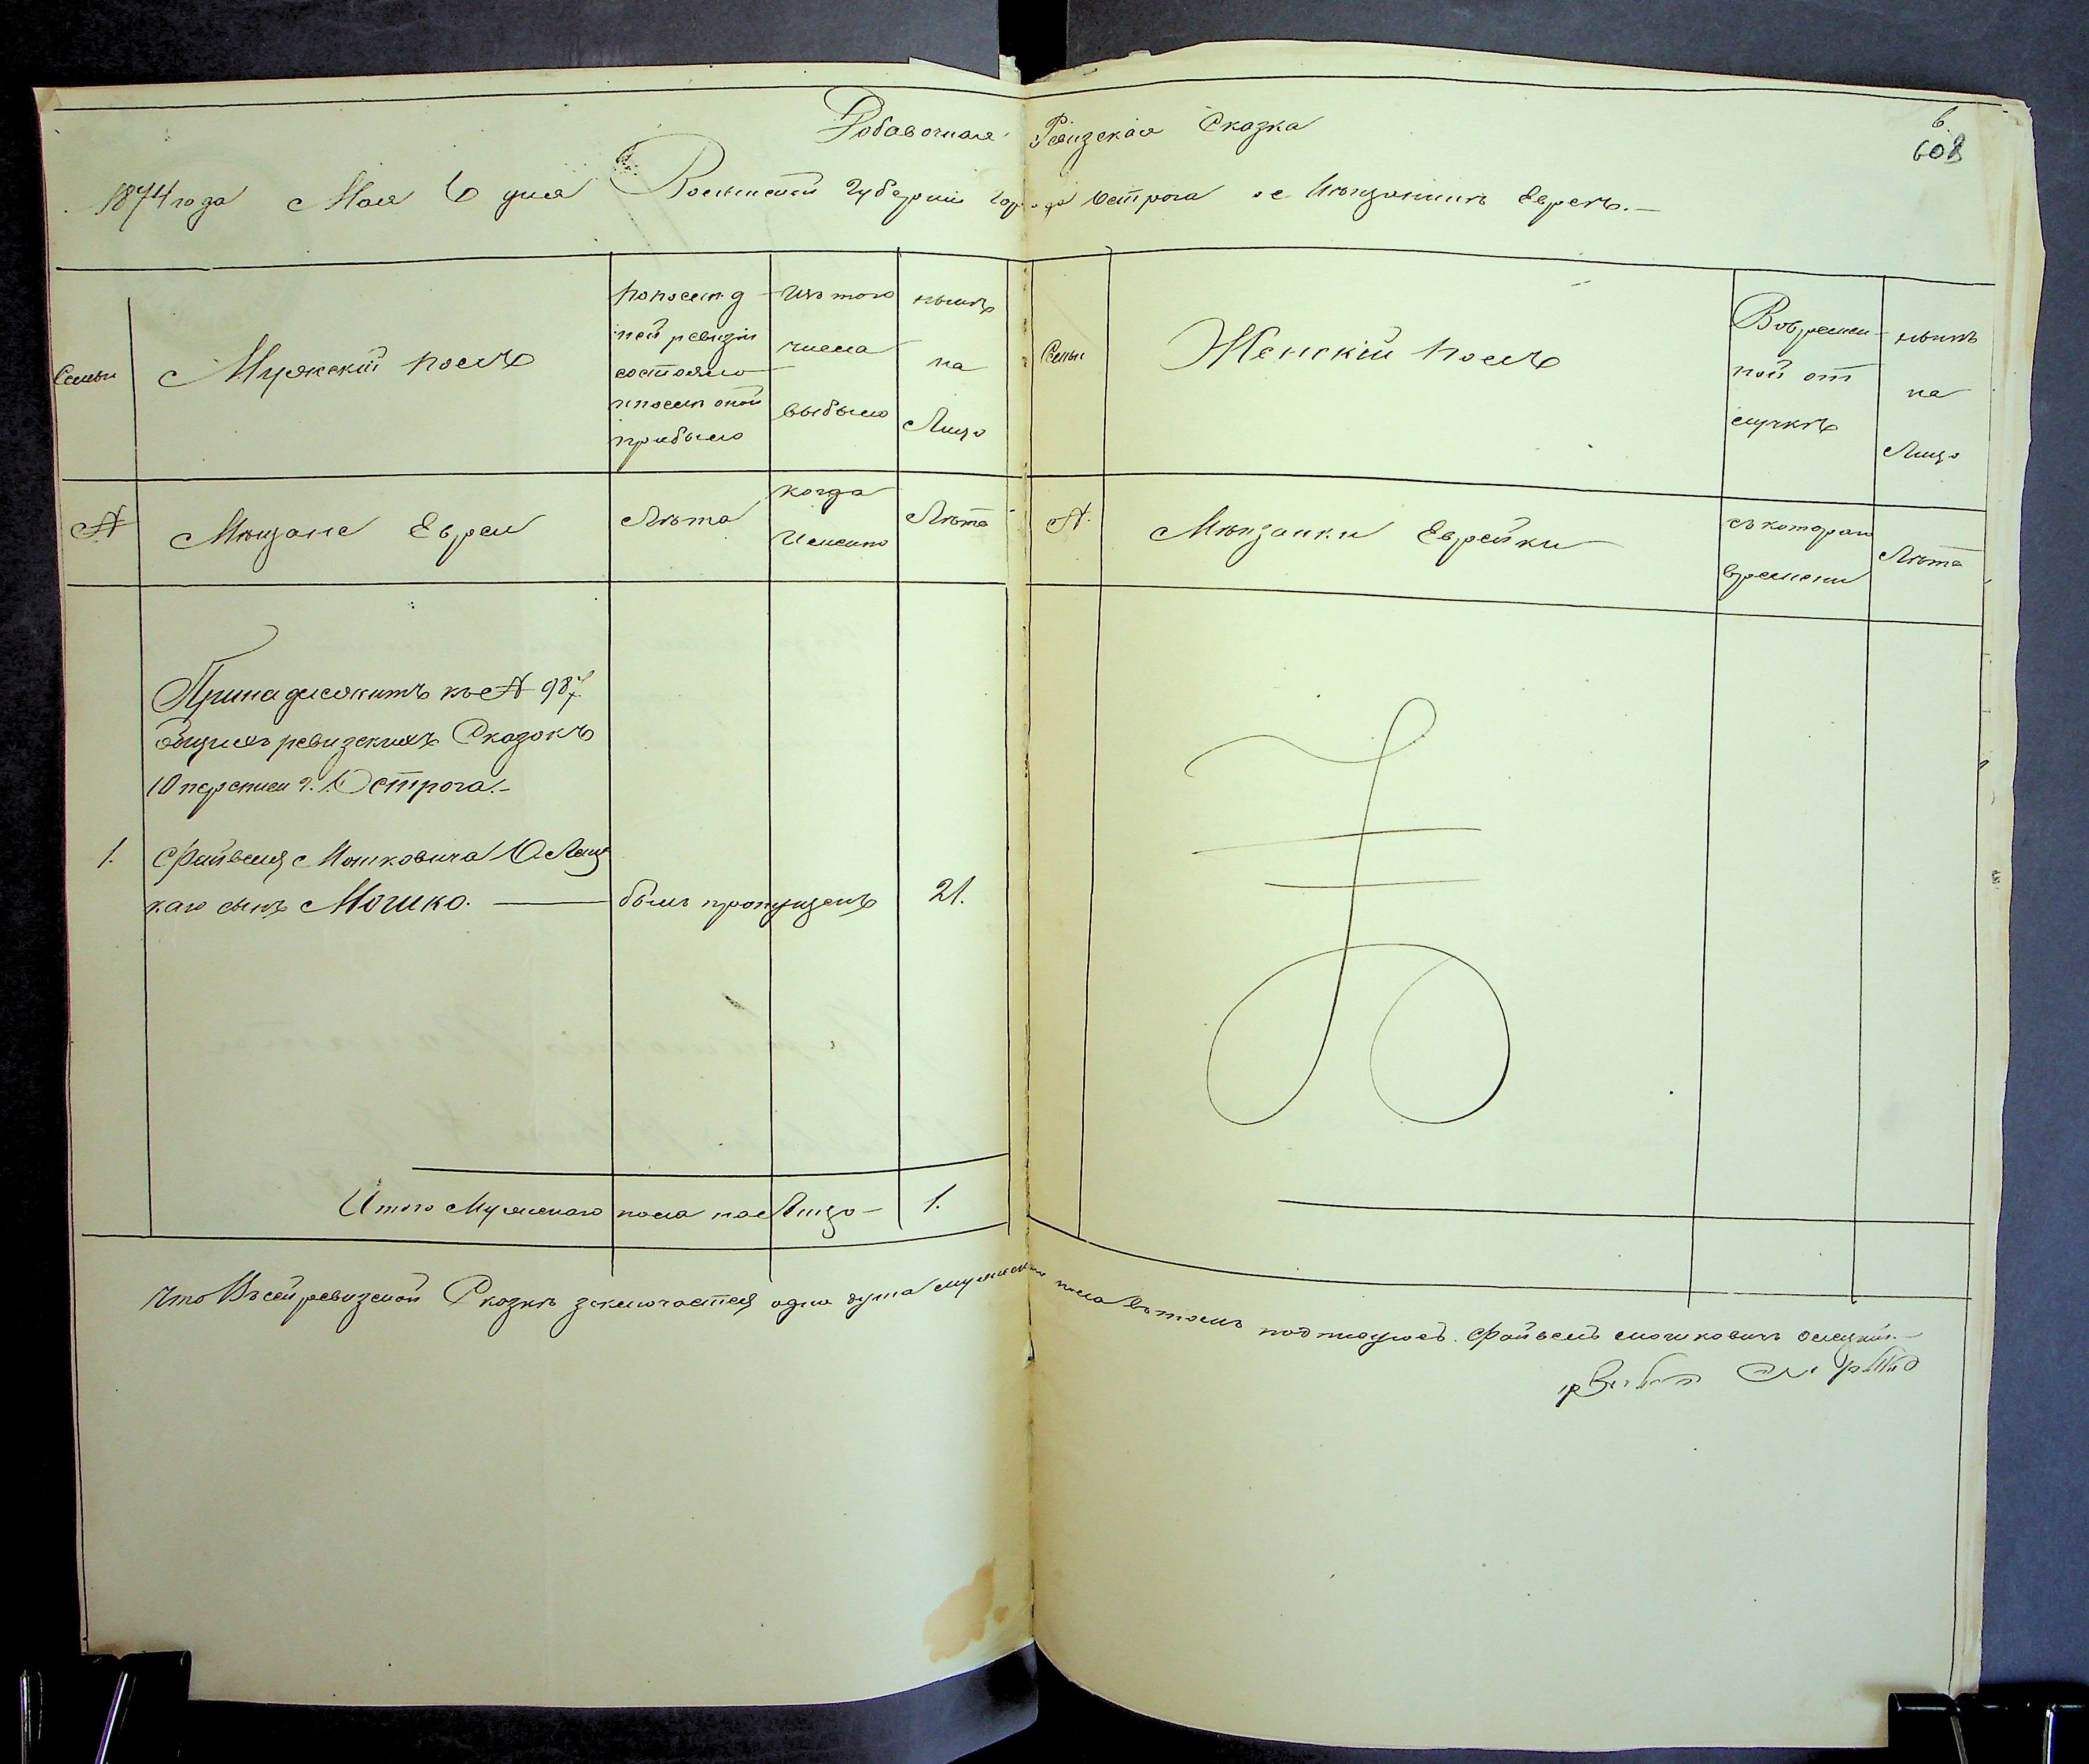 Добавочная Ревизская Сказка
6
608
1874 года Мая 6 дня Волынской Губернии города Острога о Мещанинъ Евреъ.
Семьи
Мужескій полъ
по послѣд
ней ревизіи
состояло
и послѣ оной
прибыло
Изъ того
числа
выбыло
нынѣ
на
Лицо
Семьи
Женскій полъ
Во времен
ной от
лучкѣ
нынѣ
на
Лицо
№
Мѣщане Евреи
Лѣта
когда
Именно
Лѣта
№
Мѣщанки Еврейки
съ котораго
времени
Лѣта
Принадлежитъ къ № 987
общихъ ревизскихъ Сказокъ
10 переписи г. Острога.
1. Файвеля Мошковича Олец
каго сынъ Мошко. — былъ пропущенъ 21.
Итого Мужескаго пола на Лицо — 1.
Что Въ сей ревизской Сказкѣ заключается одна душа мужеска пола въ томъ подписуюсъ. Файвель Мошковичъ Олецкій.